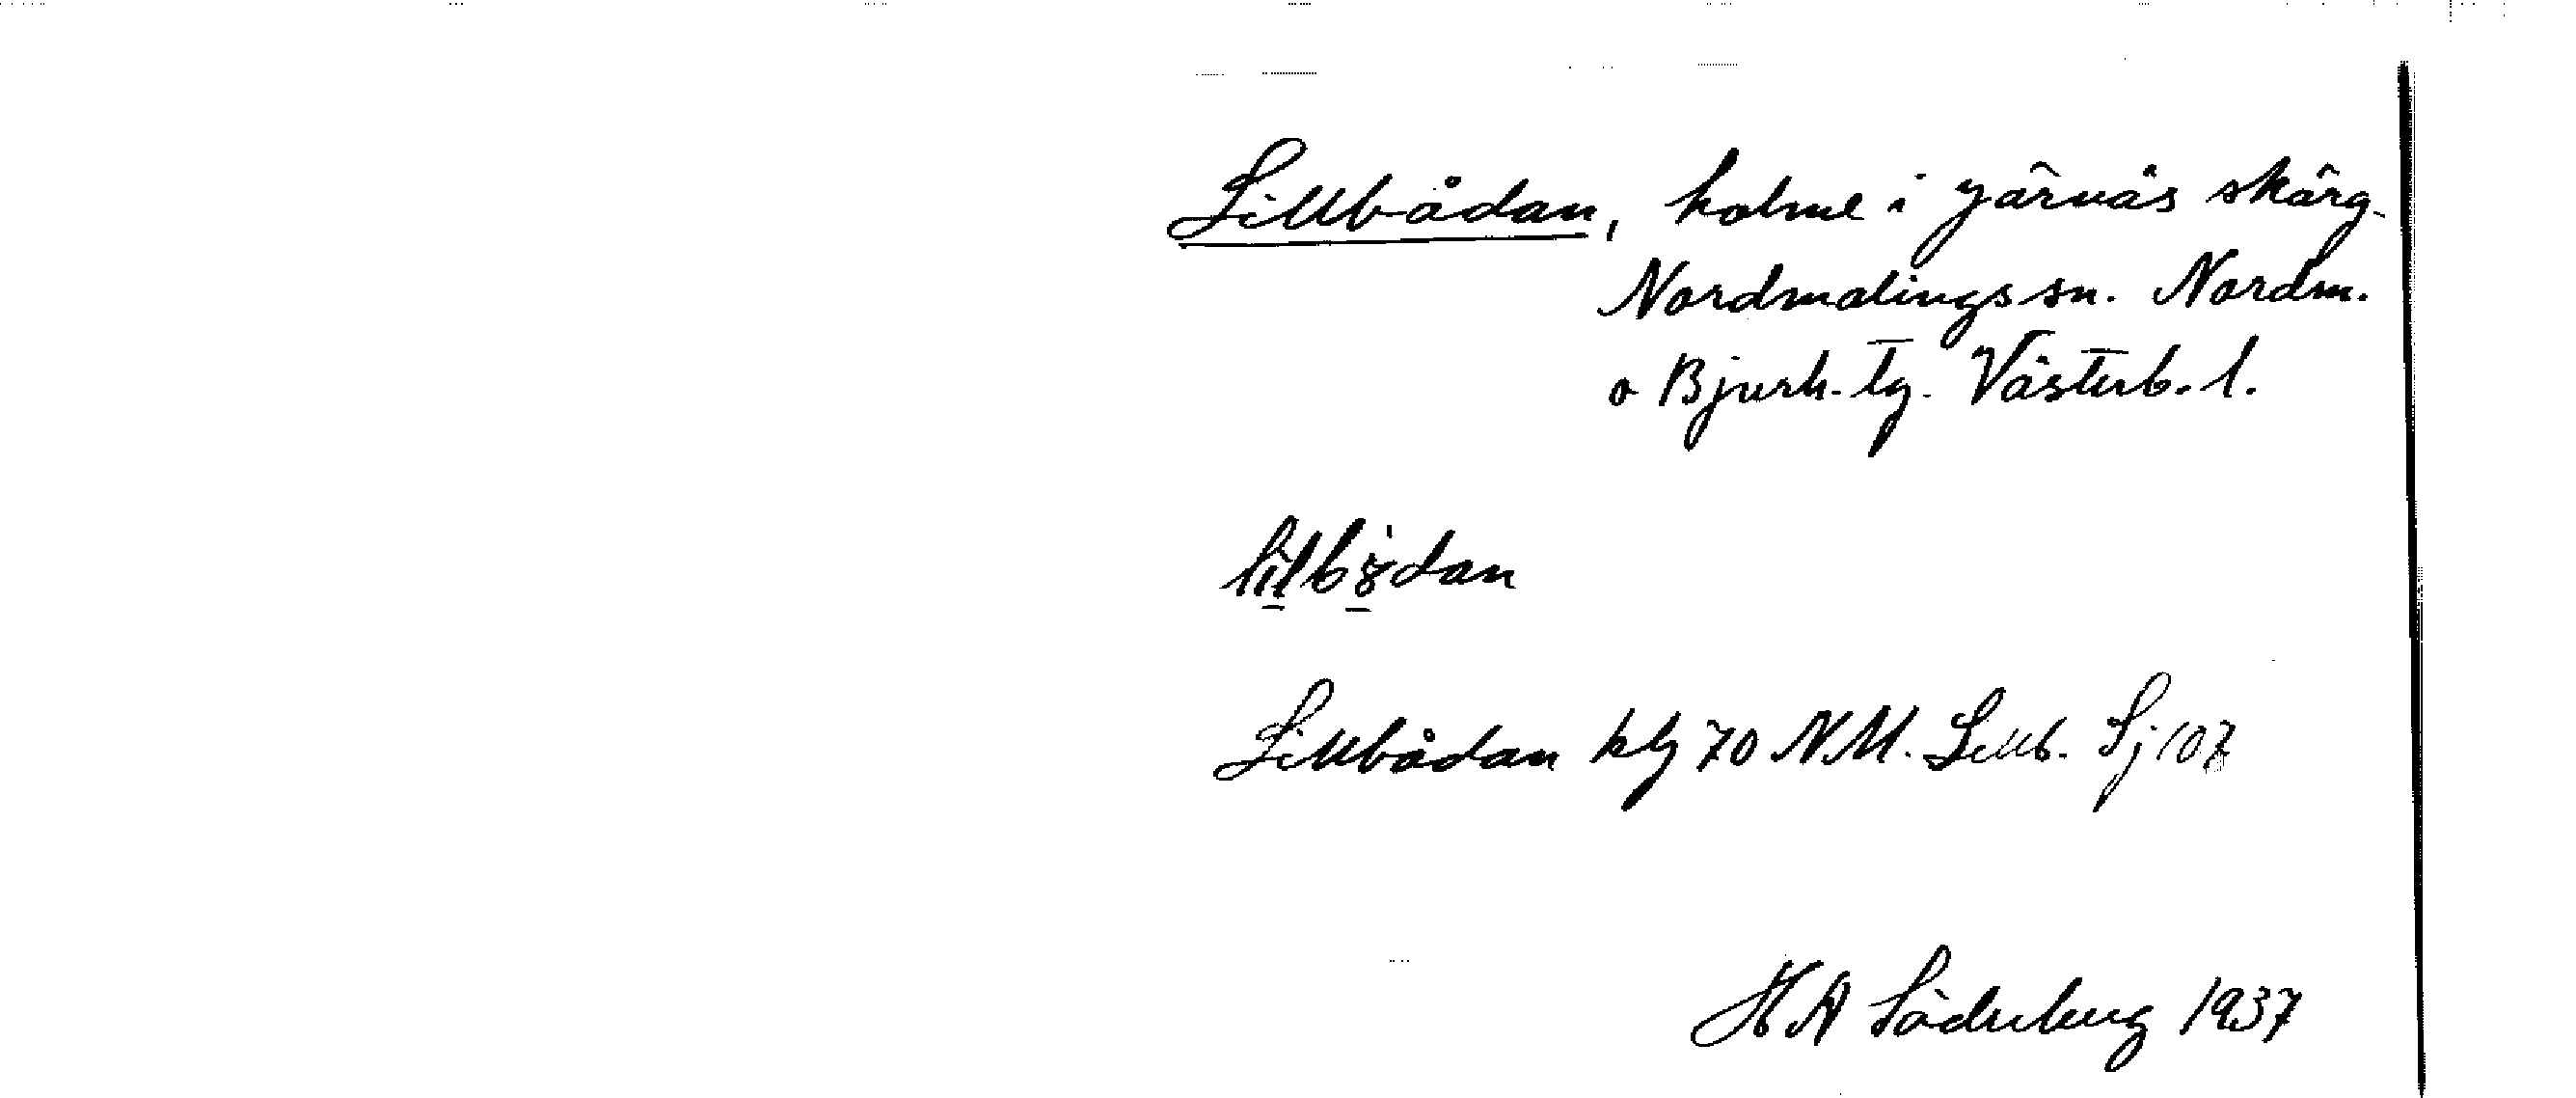 Lillbådan, holme i Järnäs skärg.
Nordmalings sn. Nordm.
o Bjurh. tg. Västerb. l.
Lillbådan kbl 70 N.M. Lillb. Sj 107
H A Söderberg 1937